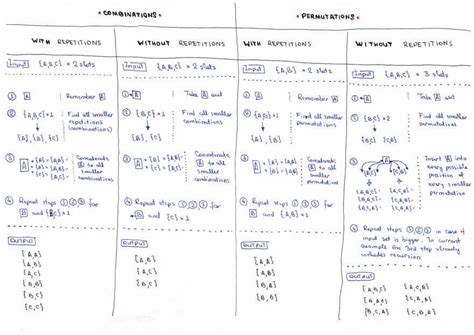 • COMBINATIONS •
WITH REPETITIONS
Input {A,B,C} × 2 slots
① A Remember A
② {A,B,C}×1 Find all smaller
repetitions
combinations)
{A} {B} {C}
③ A + Concatenate
A to all
smaller
combinations
④ Repeat steps ① ② ③ for
B and {C}×1
OUTPUT
{A,A}
{A,B}
{A,C}
{B,B}
{B,C}
{C,C}
WITHOUT REPETITIONS
Input {A,B,C} × 2 slots
① A Take A out
② {B,C}×1 Find all
smaller
combinations
{B} {C}
③ A A to all
smaller
combinations
④ Repeat steps ① ② ③
for B and {C}×1
OUTPUT
{A,B}
{A,C}
{B,C}
• PERMUTATIONS •
WITH REPETITIONS
Input {A,B} × 2 slots
① A Remember A
② {A,B}×1 Find all smaller
permutations
{A} {B}
③ A Concatenate
A to all
smaller
permutations
④ Repeat steps ① ② ③
for B
OUTPUT
{A,A}
{A,B}
{B,A}
{B,B}
WITHOUT REPETITIONS
Input {A,B,C} × 3 slots
① A Take A out
② {B,C}×2 Find all
smaller
permutations
{B,C} {C,B}
③ A Insert A into
every possible
position of
every smaller
permutation
{A,B,C} {A,C,B}
{B,A,C} {C,A,B}
{B,C,A} {C,B,A}
④ Repeat steps ① ② ③ in case of
input set is bigger. In current
example the 3rd step already
includes recursion.
OUTPUT
{A,B,C} {A,C,B}
{B,A,C} {C,A,B}
{B,C,A} {C,B,A}